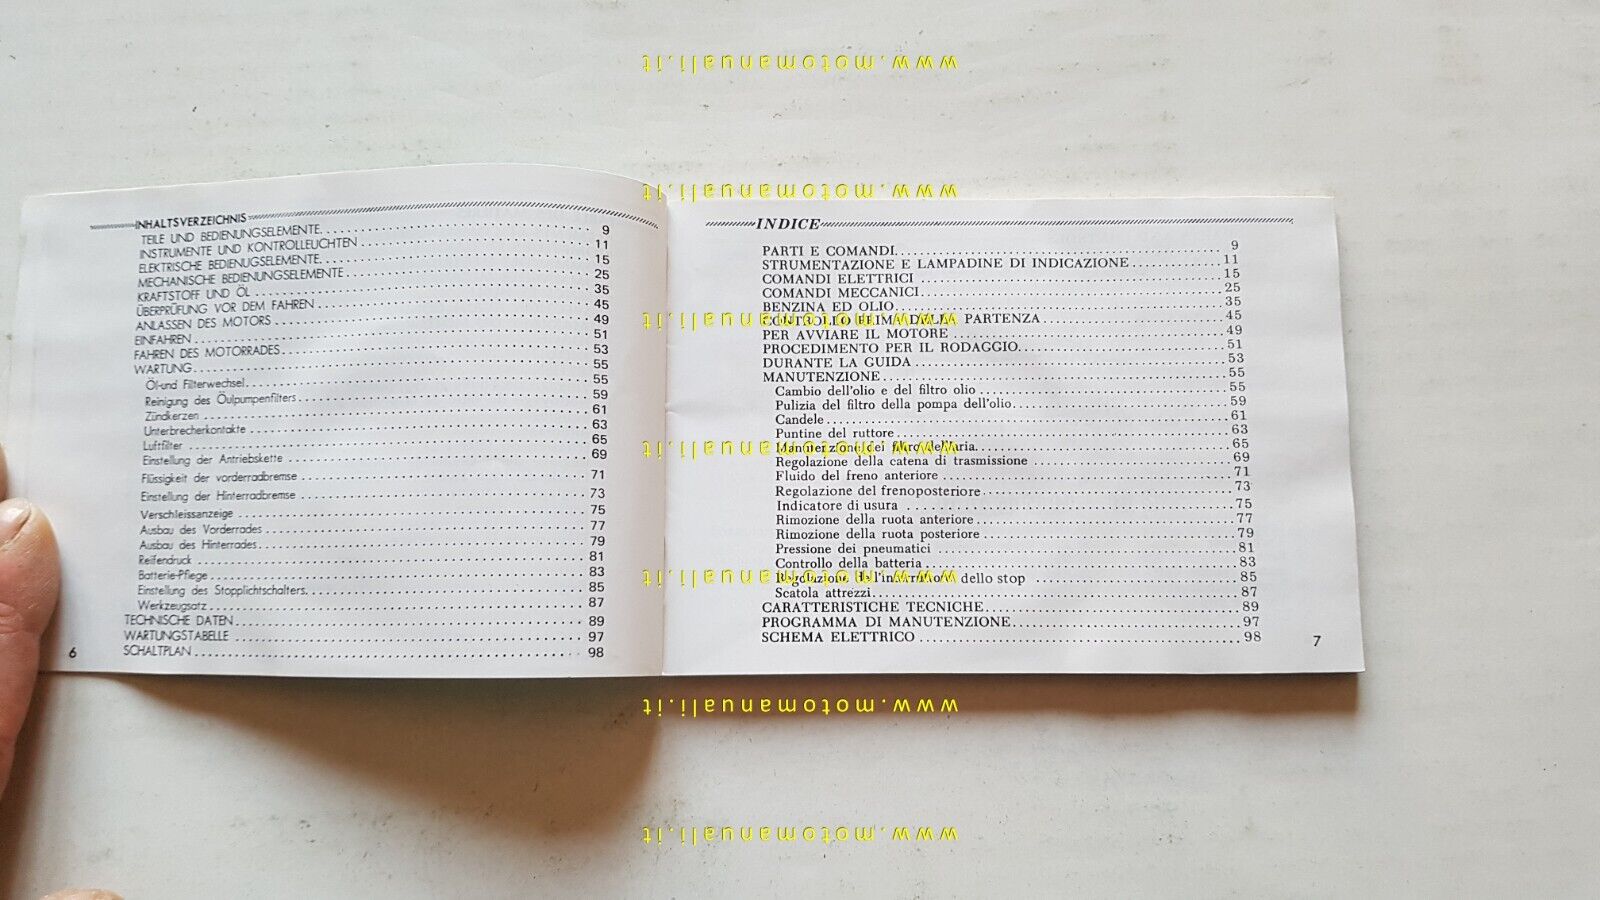 www.motomanuali.it
www.motomanuali.it
INHALTSVERZEICHNIS
TEILE UND BEDIENUNGSELEMENTE 9
INSTRUMENTE UND KONTROLLEUCHTEN 11
ELEKTRISCHE BEDIENUGSELEMENTE 15
MECHANISCHE BEDIENUNGSELEMENTE 25
KRAFTSTOFF UND ÖL 35
ÜBERPRÜFUNG VOR DEM FAHREN 45
ANLASSEN DES MOTORS 49
EINFAHREN 51
FAHREN DES MOTORRADES 53
WARTUNG 55
Öl-und Filterwechsel 55
Reinigung des Öulpumpenfilters 59
Zündkerzen 61
Unterbrecherkontakte 63
Luftfilter 65
Einstellung der Antriebskette 69
Flüssigkeit der vorderradbremse 71
Einstellung der Hinterradbremse 73
Verschleissanzeige 75
Ausbau des Vorderrades 77
Ausbau des Hinterrades 79
Reifendruck 81
Batterie-Pflege 83
Einstellung des Stopplichtschalters 85
Werkzeugsatz 87
TECHNISCHE DATEN 89
WARTUNGSTABELLE 97
SCHALTPLAN 98
6
INDICE
PARTI E COMANDI 9
STRUMENTAZIONE E LAMPADINE DI INDICAZIONE 11
COMANDI ELETTRICI 15
COMANDI MECCANICI 25
BENZINA ED OLIO 35
CONTROLLO PRIMA DELLA PARTENZA 45
PER AVVIARE IL MOTORE 49
PROCEDIMENTO PER IL RODAGGIO 51
DURANTE LA GUIDA 53
MANUTENZIONE 55
Cambio dell'olio e del filtro olio 55
Pulizia del filtro della pompa dell'olio 59
Candele 61
Puntine del ruttore 63
Manutenzione del filtro dell'aria 65
Regolazione della catena di trasmissione 69
Fluido del freno anteriore 71
Regolazione del frenoposteriore 73
Indicatore di usura 75
Rimozione della ruota anteriore 77
Rimozione della ruota posteriore 79
Pressione dei pneumatici 81
Controllo della batteria 83
Regolazione dell'interruttore dello stop 85
Scatola attrezzi 87
CARATTERISTICHE TECNICHE 89
PROGRAMMA DI MANUTENZIONE 97
SCHEMA ELETTRICO 98
7
www.motomanuali.it
www.motomanuali.it
www.motomanuali.it
www.motomanuali.it
www.motomanuali.it